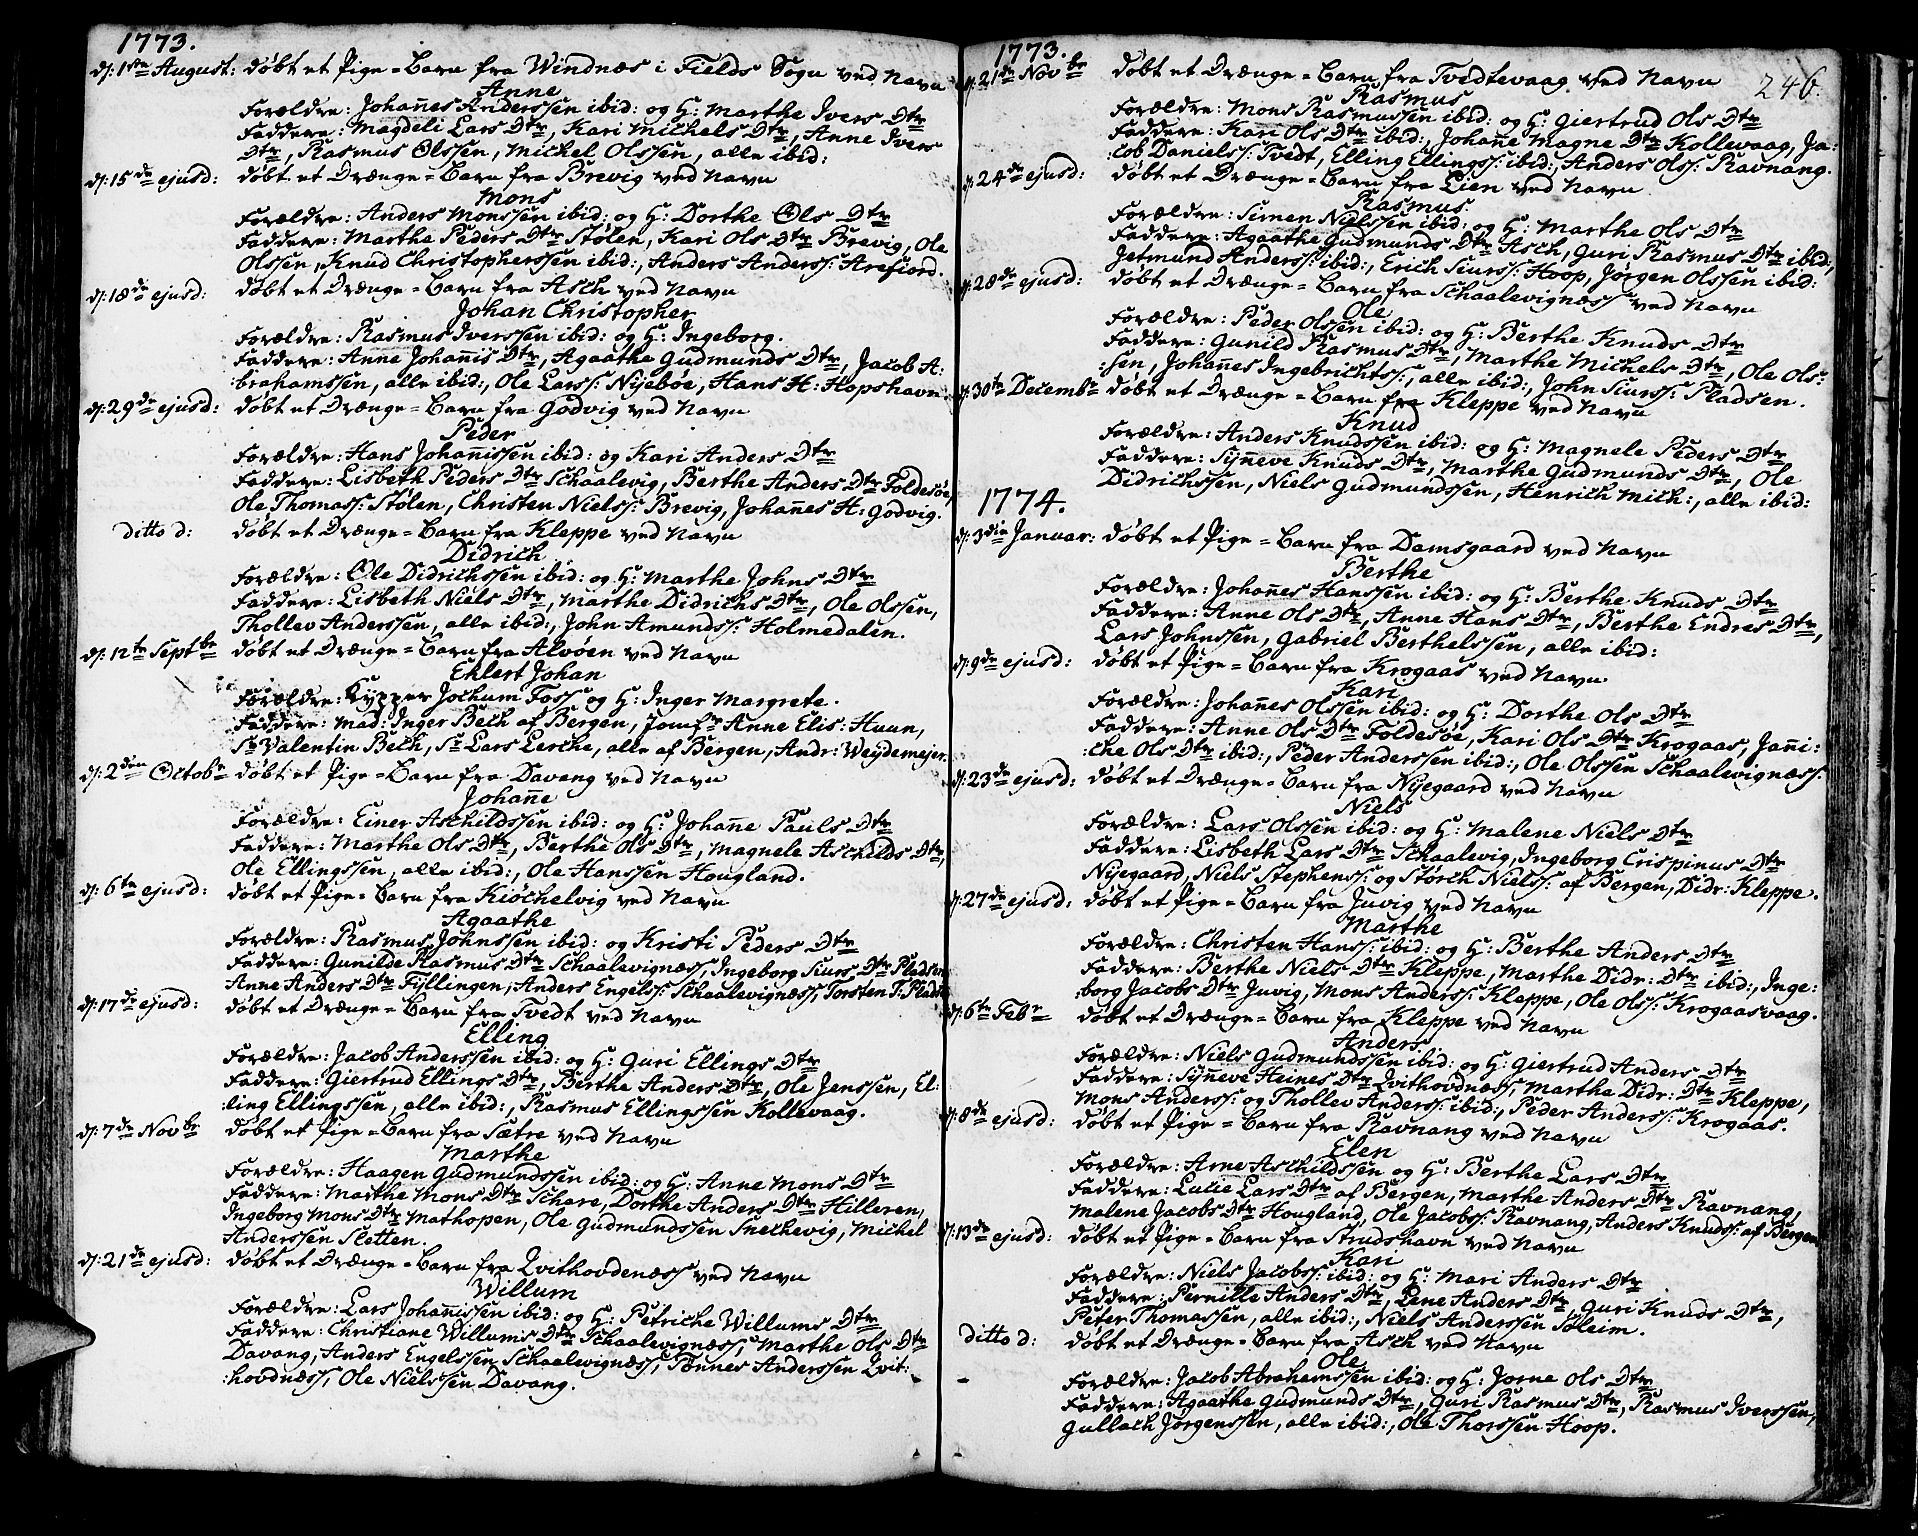 1773.
d: 1ste August: døbt et Pige-Barn fra Windnæs i Fields Sogn ved Navn
Anne
Forældre: Johanes Anderssen ibid: og H: Marthe Ivers Dtr
Faddere: Magdeli Lars Dtr, Kari Michels Dtr, Anne Ivers
Dtr, Rasmus Olssen, Michel Olssen, alle ibid:
d: 15de ejusd: døbt et Drænge-Barn fra Brevig ved Navn
Mons
Forældre: Anders Monssen ibid: og H: Dorthe Ols Dtr
Faddere: Marthe Peders Dtr Stølen, Kari Ols Dtr Brevig, Ole
Olssen, Knud Christopherssen ibid:, Anders Anderss: Arefiord.
d: 18de ejusd: døbt et Drænge-Barn fra Asch ved Navn
Johan Christopher
Forældre: Rasmus Iverssen ibid: og H: Ingeborg.
Faddere: Anne Johannis Dtr, Agaathe Gudmunds Dtr, Jacob A:
:brahamssen, alle ibid:, Ole Larss: Nijebøe, Hans H: Hopshavn.
d: 29de ejusd: døbt et Drænge-Barn fra Godvig ved Navn
Peder
Forældre: Hans Johannissen ibid: og Kari Anders Dtr
Faddere: Lisbeth Peders Dtr Schaalevig, Berthe Anders Dtr Foldesøe,
Ole Thomass: Stølen, Christen Nielss: Brevig, Johannes H: Godvig.
ditto d: døbt et Drænge-Barn fra Kleppe ved Navn
Didrich
Forældre: Ole Didrichssen ibid: og H: Marthe Johns Dtr
Faddere: Lisbeth Niels Dtr, Marthe Didrichs Dtr, Ole Olssen,
Thollev Anderssen, alle ibid:, John Amundss: Holmedalen.
d: 12te Septbr døbt et Drænge-Barn fra Alvøen ved Navn
Ehlert Johan
Forældre: Kypper Jochum Foss og H: Inger Margrete.
Faddere: Mad: Inger Bech af Bergen, Jomfr Anne Elis: Huun,
Sr Valentin Bech, Sr Lars Lerche, alle af Bergen, Andr: Weydemejer.
d: 2den Octobr døbt et Pige-Barn fra Davang ved Navn
Johanne
Forældre: Einer Aschildssen ibid: og H: Johanne Pauls Dtr
Faddere: Marthe Ols Dtr, Berthe Ols Dtr, Magnele Aschilds Dtr,
Ole Ellingssen, alle ibid:, Ole Hanssen Hougland.
d: 6te ejusd: døbt et Pige-Barn fra Kiøchelvig ved Navn
Agaathe
Forældre: Rasmus Johnssen ibid: og Kristi Peders Dtr
Faddere: Gunilde Rasmus Dtr Schaalevignæss, Ingeborg Siurs Dtr Pladsen
Anne Anders Dtr Fyllingen, Anders Engelss: Schaalevignæss, Torsten T: Pladsen
d: 17de ejusd: døbt et Drænge-Barn fra Tvedt ved Navn
Elling
Forældre: Jacob Anderssen ibid: og H: Guri Ellings Dtr
Faddere: Giertrud Ellings Dtr, Berthe Anders Dtr, Ole Jenssen, El:
:ling Ellingssen, alle ibid:, Rasmus Ellingssen Kollevaag.
d: 7de Novbr døbt et Pige-Barn fra Sætre ved Navn
Marthe
Forældre: Haagen Gudmundssen ibid: og H: Anne Mons Dtr
Faddere: Marthe Mons Dtr Schare, Dorthe Anders Dtr Hilleren,
Ingeborg Mons Dtr Mathopen, Ole Gudmundssen Snechevig, Michel
Anderssen Sletten.
d: 21de ejusd: døbt et Drænge-Barn fra Qvithovdenæss ved Navn
Willum
Forældre: Lars Johannissen ibid: og H: Petriche Willums Dtr
Faddere: Christiane Willums Dtr Schaalevignæss, Marthe Ols Dtr
Davang, Anders Engelssen Schaalevignæss, Tønnes Anderssen Qvit:
:hovdnæss, Ole Nielssen Davang.
1773.
246.
d: 21de Novbr døbt et Drænge-Barn fra Tvedtevaag ved Navn
Rasmus
Forældre: Mons Rasmussen ibid: og H: Giertrud Ols Dtr
Faddere: Kari Ols Dtr ibid:, Johanne Magne Dtr Kollevaag, Ja:
:cob Danielss: Tvedt, Elling Ellingss: ibid:, Anders Olss: Ravnang.
d: 24de ejusd: døbt et Drænge-Barn fra Lien ved Navn
Rasmus
Forældre: Simen Nielssen ibid: og H: Marthe Ols Dtr
Faddere: Agaathe Gudmunds Dtr Asch, Guri Rasmus Dtr ibid:,
Jetmund Anderss: ibid:, Erich Siurss: Hoop, Jørgen Olssen ibid:
d: 28de ejusd: døbt et Drænge-Barn fra Schaalevignæss ved Navn
Ole
Forældre: Peder Olssen ibid: og H: Berthe Knuds Dtr
Faddere: Gunild Rasmus Dtr, Marthe Michels Dtr, Ole Ols:
:sen, Johannes Ingebrichtss:, alle ibid:, John Siurss: Pladsen.
d: 30te Decembr døbt et Drænge-Barn fra Kleppe ved Navn
Knud
Forældre: Anders Knudssen ibid: og H: Magnele Peders Dtr
Faddere: Synneve Knuds Dtr, Marthe Gudmunds Dtr, Ole
Didrichssen, Niels Gudmundssen, Henrich Mich:, alle ibid:
1774.
d: 3die Januar: døbt et Pige-Barn fra Damsgaard ved Navn
Berthe
Forældre: Johannes Hanssen ibid: og H: Berthe Knuds Dtr
Faddere: Anne Ols Dtr, Anne Hans Dtr, Berthe Endres Dtr,
Lars Johnssen, Gabriel Berthelssen, alle ibid:
d: 9de ejusd: døbt et Pige-Barn fra Krogaas ved Navn
Kari
Forældre: Johannes Olssen ibid: og H: Dorthe Ols Dtr
Faddere: Anne Ols Dtr Foldesøe, Kari Ols Dtr Krogaas, Janni:
:che Ols Dtr ibid:, Peder Anderssen ibid:, Ole Olssen Schaalevignæss.
d: 23de ejusd: døbt et Drænge-Barn fra Nijegaard ved Navn
Niels
Forældre: Lars Olssen ibid: og H: Malene Niels Dtr
Faddere: Lisbeth Lars Dtr Schaalevig, Ingeborg Crispinus Dtr
Nijegaard, Niels Stephenss: og Størch Nielss: af Bergen, Didr: Kleppe.
d: 27de ejusd: døbt et Pige-Barn fra Juvig ved Navn
Marthe
Forældre: Christen Hanss: ibid: og H: Berthe Anders Dtr
Faddere: Berthe Niels Dtr Kleppe, Marthe Didr: Dtr ibid:, Inge:
:borg Jacobs Dtr Juvig, Mons Anderss: Kleppe, Ole Olss: Krogaasvaag.
d: 6te Febr døbt et Drænge-Barn fra Kleppe ved Navn
Anders
Forældre: Niels Gudmundssen ibid: og H: Giertrud Anders Dtr
Faddere: Synneve Heines Dtr Qvithovdnæss, Marthe Didr: Dtr Kleppe,
Mons Anderss: og Thollev Anderss: ibid:, Peder Anderss: Krogaas.
d: 8de ejusd: døbt et Pige-Barn fra Ravnang ved Navn
Elen
Forældre: Arne Aschildssen og H: Berthe Lars Dtr
Faddere: Lucie Lars Dtr af Bergen, Marthe Anders Dtr Ravnang,
Malene Jacobs Dtr Hougland, Ole Jacobss: Ravnang, Anders Knudss: af Bergen
d: 13de ejusd: døbt et Pige-Barn fra Strudshavn ved Navn
Kari
Forældre: Niels Jacobss: ibid: og H: Mari Anders Dtr
Faddere: Pernille Anders Dtr, Lene Anders Dtr, Guri Knuds Dtr,
Peter Thomassen, alle ibid:, Niels Anderssen Søleim.
ditto d: døbt et Drænge-Barn fra Asch ved Navn
Ole
Forældre: Jacob Abrahamssen ibid: og H: Jorne Ols Dtr
Faddere: Agaathe Gudmunds Dtr, Guri Rasmus Dtr, Rasmus Iverssen,
Gullach Jørgenssen, alle ibid:, Ole Thorssen Hoop.